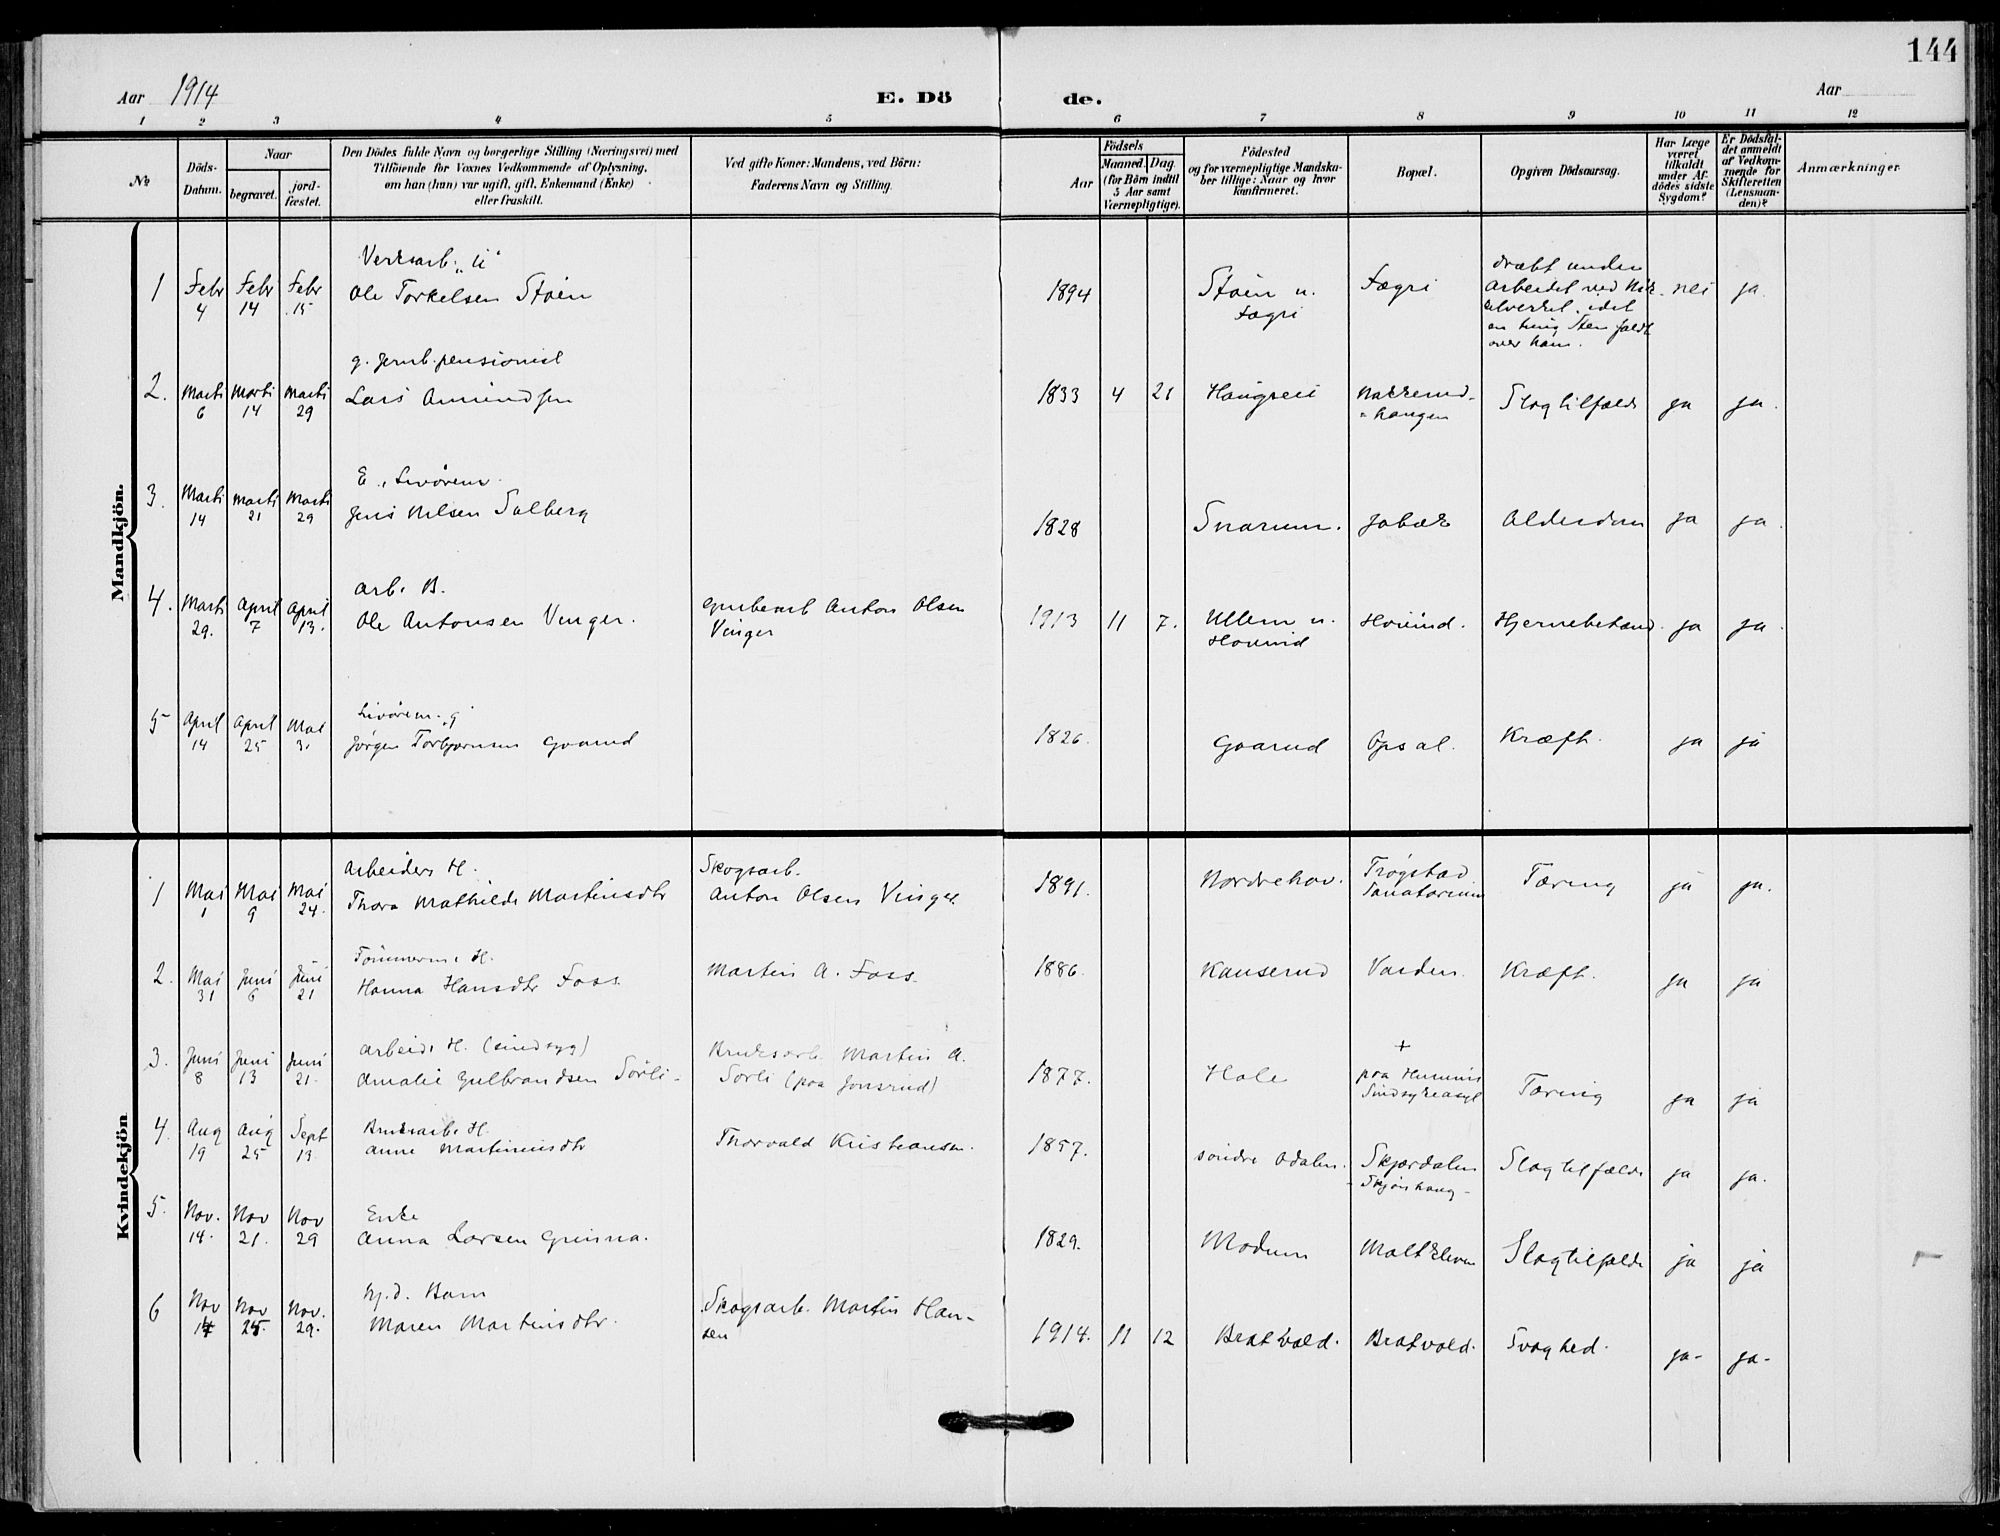 144
Aar 1914
E. Dö
de.
Aar
1 2 3 4 5 6 7 8 9 10 11 12
No.
Döds-
Datum.
Naar
begravet.
jord-
fæstet.
Den Dödes fulde Navn og borgerlige Stilling (Næringsvei) med
Tilföiende for Voxnes Vedkommende af Oplysning,
om han (hun) var ugift, gift, Enkemand (Enke)
eller fraskilt.
Ved gifte Koner: Mandens, ved Börn:
Faderens Navn og Stilling.
Aar
Födsels
Maaned. Dag
(for Börn indtil
5 Aar samt
Værnepligtige).
Födested
og for værnepligtige Mandska-
ber tillige: Naar og hvor
konfirmeret.
Bopæl.
Opgiven Dödsaarsag.
Har Læge
været
tilkaldt
under Af-
dödes sidste
Sygdom?
Er Dödsfal-
det anmeldt
af Vedkom-
mende for
Skifteretten
(Lensman-
den)?
Anmærkninger
Mandkjön.
1 Febr 4 Febr 14 Febr 15
Verksarb. "U"
Ole Torkelsen Støen
1894 Støen u. Fægri Fægri
dræbt under
arbeidet ved Nik-
elverket, idet
en Sten faldt
over ham.
nei ja.
2. Marti 6 Marti 14 Marti 29
g. Jernb. pensionist
Lars Amundsen
1833 4 21 Nakkerud-
haugen Slagtilfælde ja ja.
3. Marti 14 Marti 21 Marti 29
E. Livørem.
Jens Nilsen Solberg
1828 Snarum. Alderdom ja ja.
4. Marti 29. April 7 April 13.
arb. B.
Ole Antonsen Vinger.
Grubearb Anton Olsen
Vinger
1913 11 7. Ullern u.
Hovind Hovind. Hjernebetænd. ja ja.
5 April 14 April 25 Mai 3.
Livørem. g
Jørgen Torbjørnsen Gaarud
1826. Gaarud Opsal. Kræft. ja ja
Kvindekjön
1 Mai 1 Mai 9 Mai 24.
Arbeiders H.
Thora Mathilde Martinsdtr
Skogsarb.
Anton Olsen Vinger
1891. Norderhov. Trøgstad
Sanatorium Tæring ja ja.
2. Mai 31 Juni 6 Juni 21
Tømmerm. H.
Hanna Hansdtr Foss.
Martin A. Foss.
1886. Kanserud Varden. Kræft. ja ja
3. Juni 8 Juni 13 Juni 21.
Arbeid. H. (sindsyg)
Amalie Gulbrandsen Sørli.
Bruksarb. Martin A.
Sørli (paa Jonsrud)
1877. Hole +
paa
Sindsykeasyl Tæring ja ja
4. Aug 19 Aug 25 Sept 13.
Bruksarb. H.
Anne Martinusdtr
Thorvald Kristiansen.
1857. søndre Odalen. Skjærdalen
- Skjønhaug - Slagtilfælde ja ja.
5. Nov. 14. Nov 21. Nov 29
Enke
Anna Larsen Grinna.
1829. Modum Slagtilfælde ja ja
6 Nov 14 Nov 25. Nov. 29.
hj.d. Barn
Maren Martinsdtr.
Skogsarb. Martin Han-
sen
1914. 11 12 Bratvold. Bratvold. Svaghed. ja- ja-